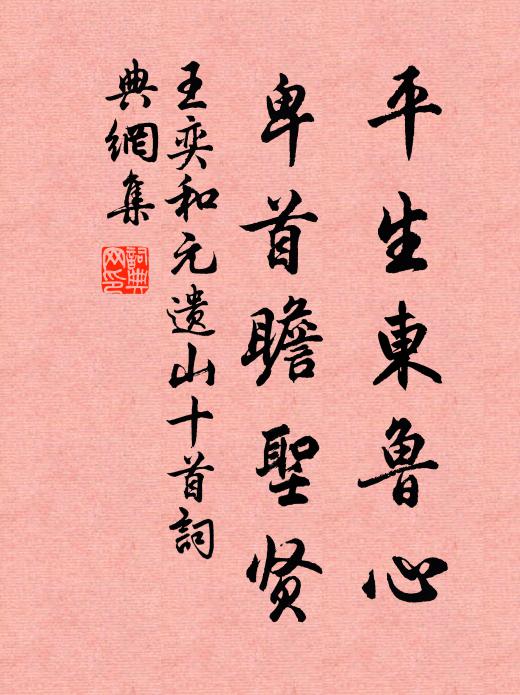 平生東魯心
卑首瞻聖贤
王奕和元遗山十首詞
典網集
詞典
网印